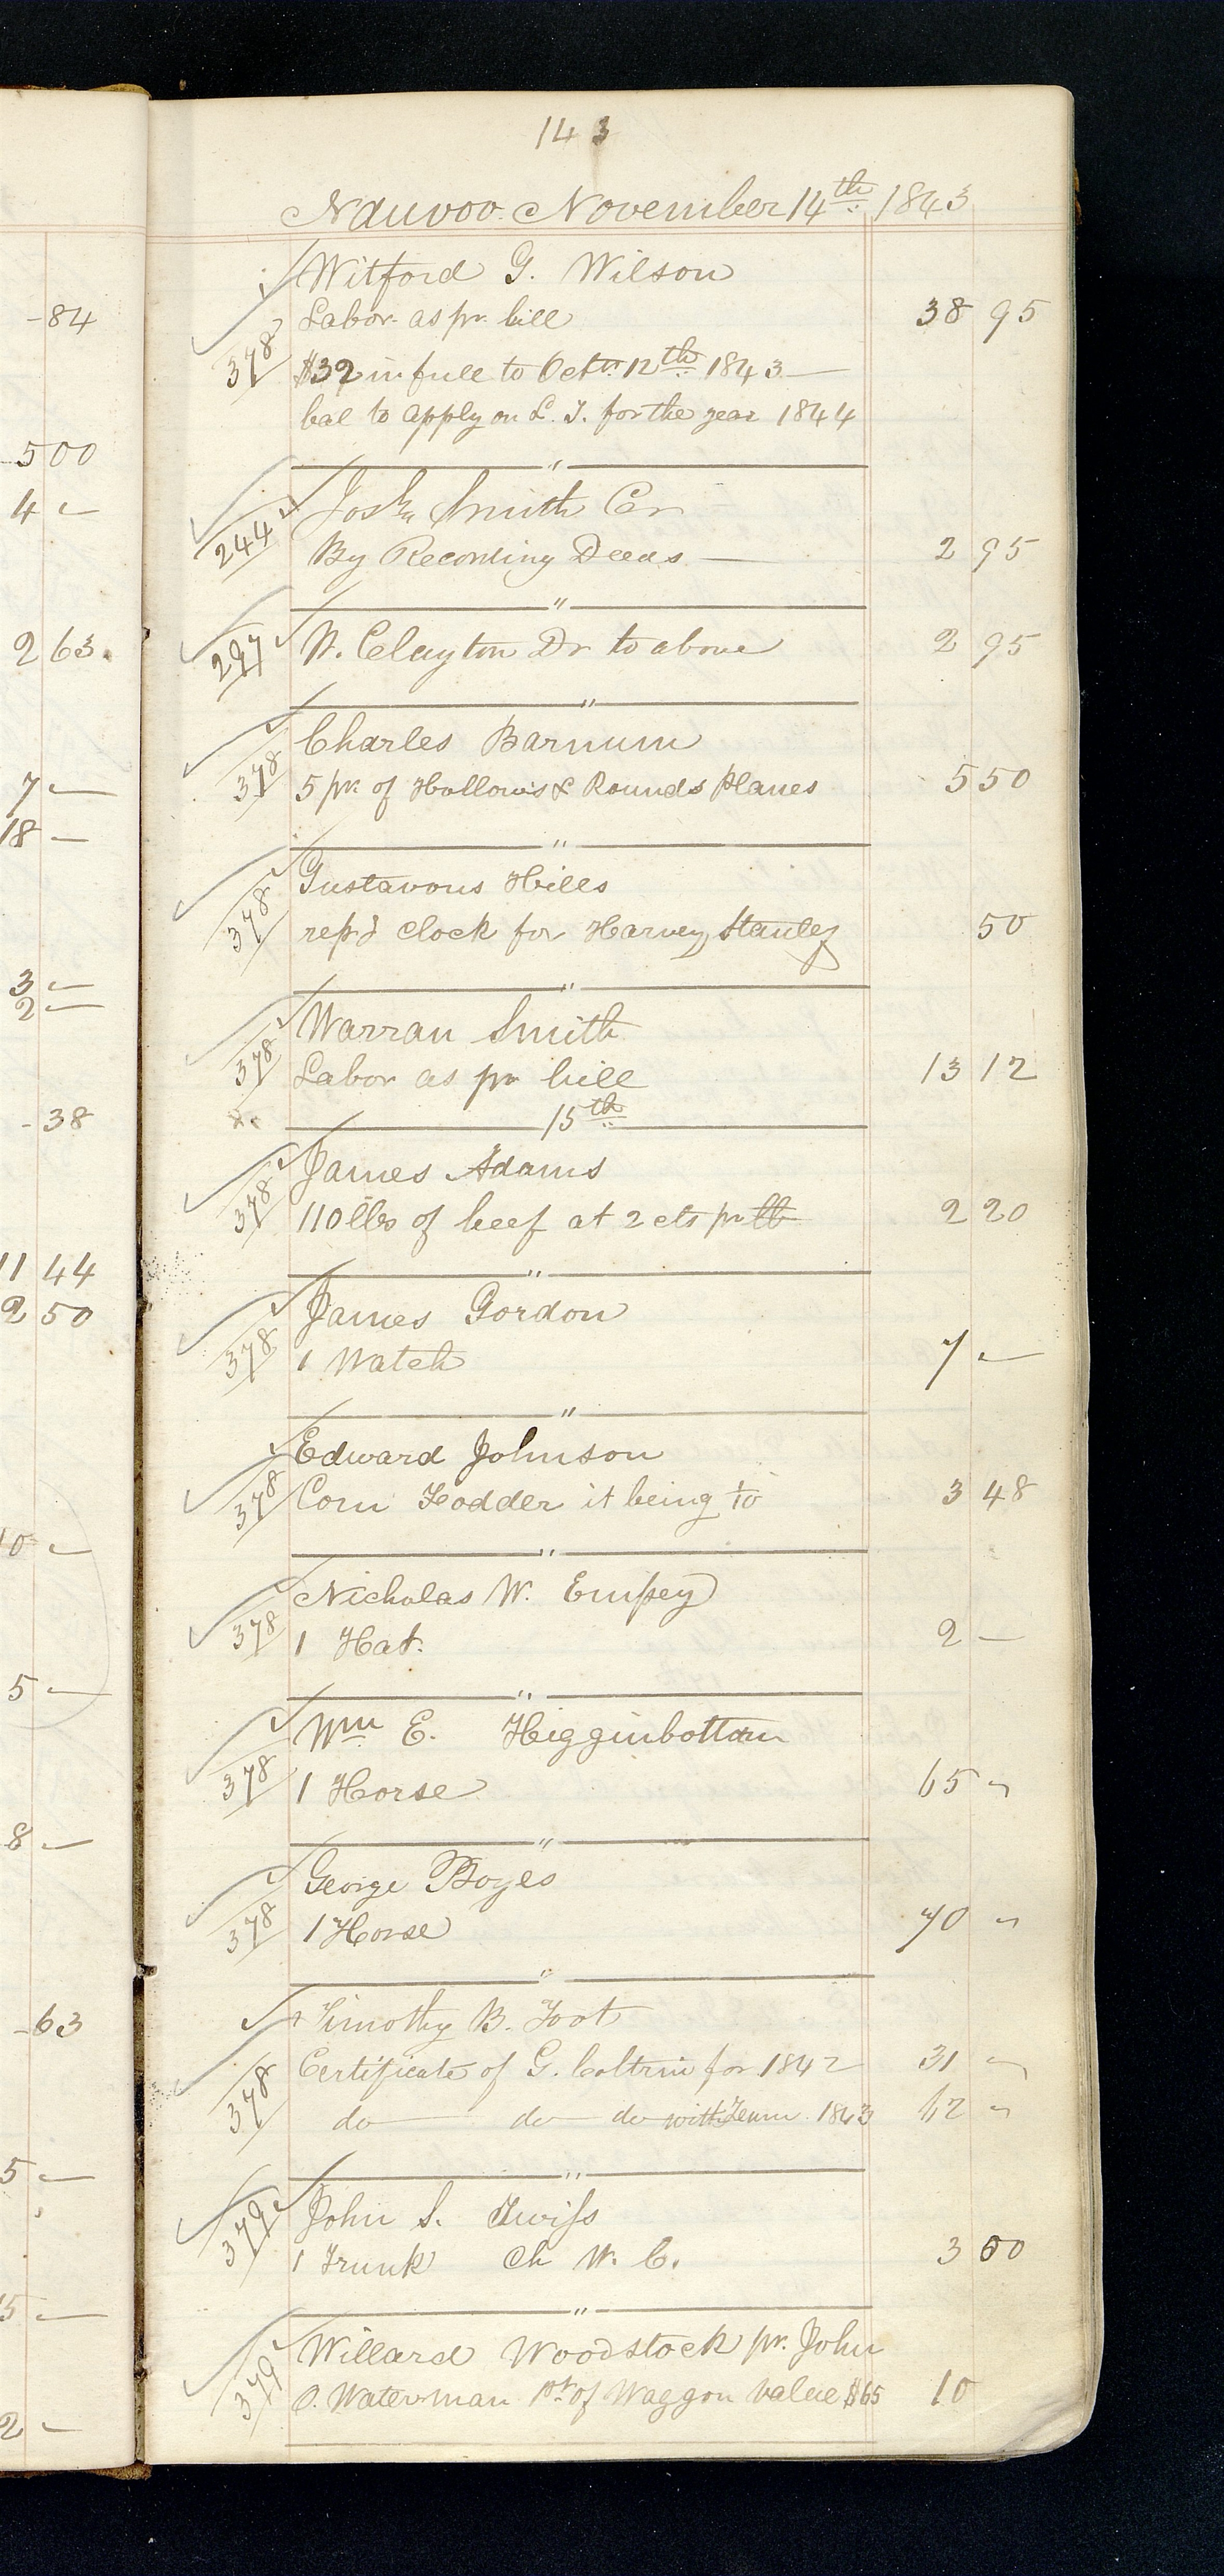 143
Nauvoo November 14th 1843
-84
Witford G. Wilson
Labor as pr. bill 38 95
378 $32 in full to Octr. 12th 1843
bal to apply on L. T. for the year 1844
500
4 -
244 Josh Smith Cr
By Recording Deeds 2 95
"
2 63.
297 W. Clayton Dr to above 2 95
"
378 Charles Barnum
7 -
5 pr. of Hollows & Rounds Planes 5 50
18 -
"
378 Gustavous Hills
repd clock for Harvey Stanley 50
3 -
2 -
"
378 Warran Smith
Labor as pr bill 13 12
-38
15th
378 James Adams
110 lbs of beef at 2 cts pr lb 2 20
11 44
2 50
"
378 James Gordon
1 Watch 7 -
"
Edward Johnson
378 Corn Fodder it being to 3 48
10 -
"
378 Nicholas W. Empey
1 Hat. 2 -
5 -
"
378 Wm E. Higginbottam
1 Horse 65 -
8 -
"
378 George Boyes
1 Horse 70 -
-63
"
Timothy B. Foot
378 Certificate of G. Coltrin for 1842 31 -
do do do with Team 1843 62 -
5 -
"
379 John S. Twiss
1 Trunk Ch W. C. 3 50
5 -
"
379 Willard Woodstock pr. John
O. Waterman pt of Waggon value $65 10
2 -